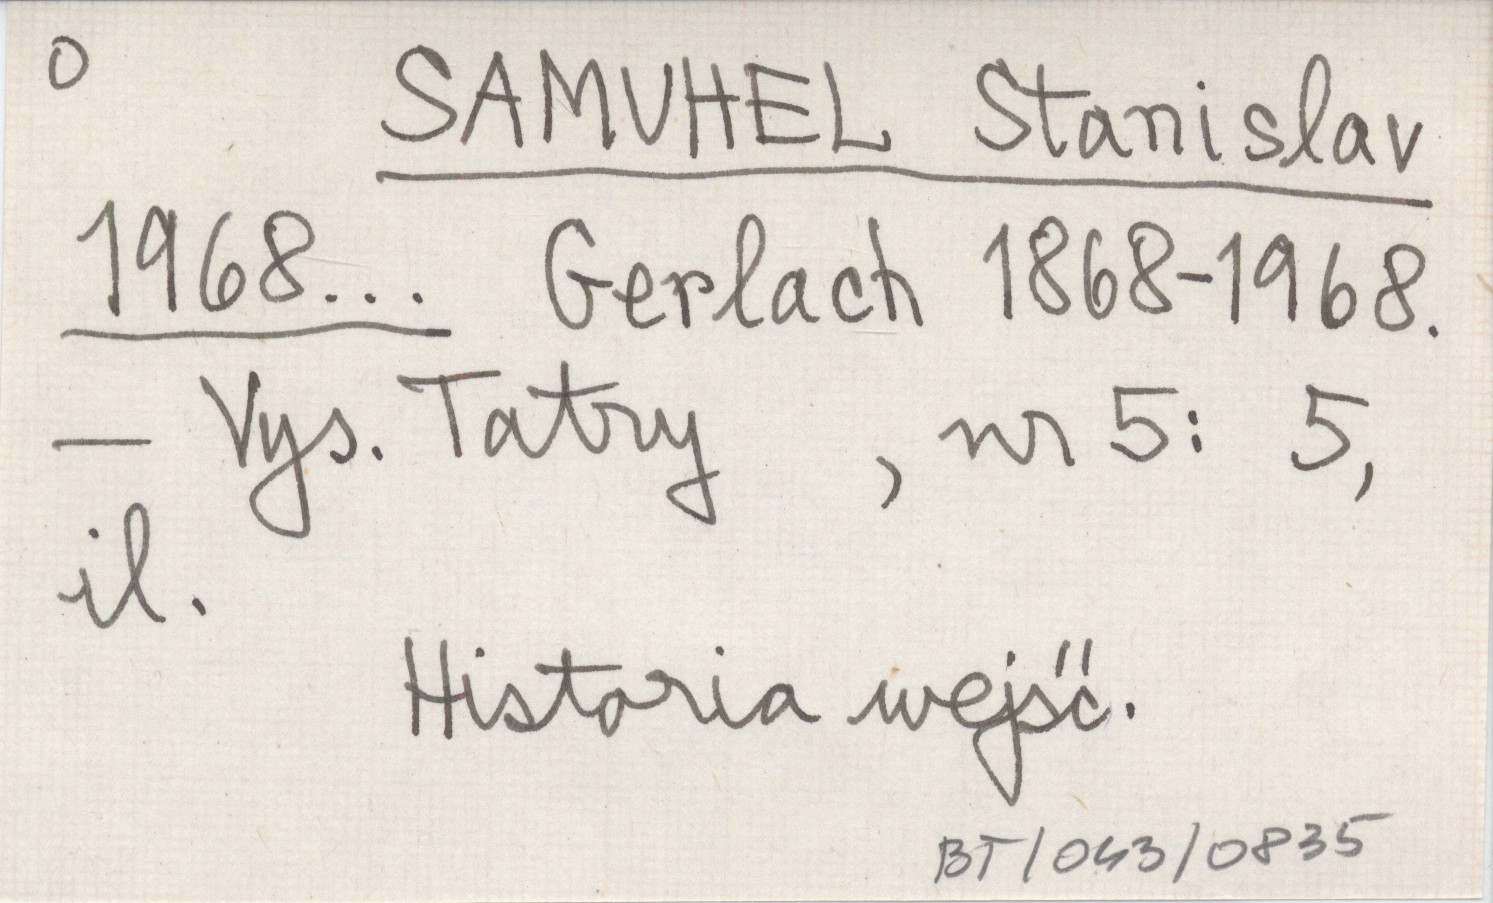 O SAMUHEL Stanislav
1968... Gerlach 1868-1968.
— Vys. Tatry , nr 5: 5,
il.
Historia wejść.
BT/043/0835